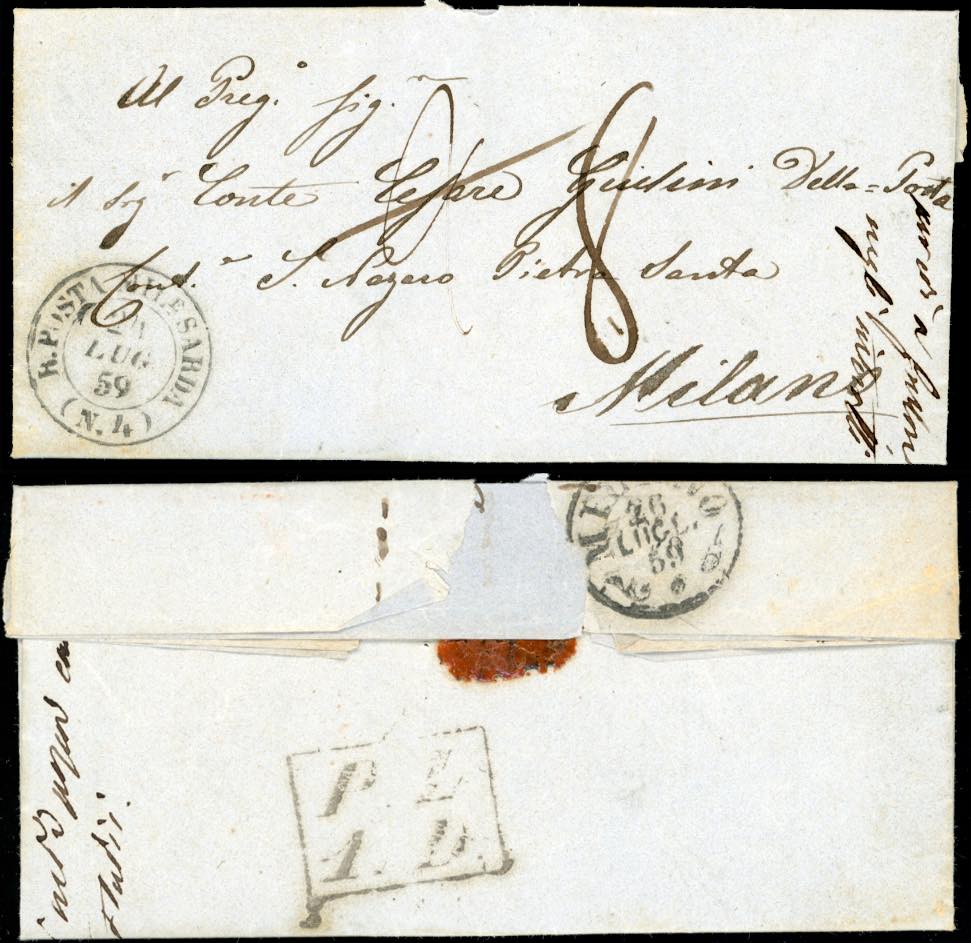 Al Preg.º Sig.r
il Sigr Conte Cesare Giulini Della=Porta
Cont.a S. Nazaro Pietra Santa
8
Milano
R. POSTA MIL.E SARDA
24
LUG
59
(N. 4)
MILANO
26
LUG.
59
P. L.
A. D.